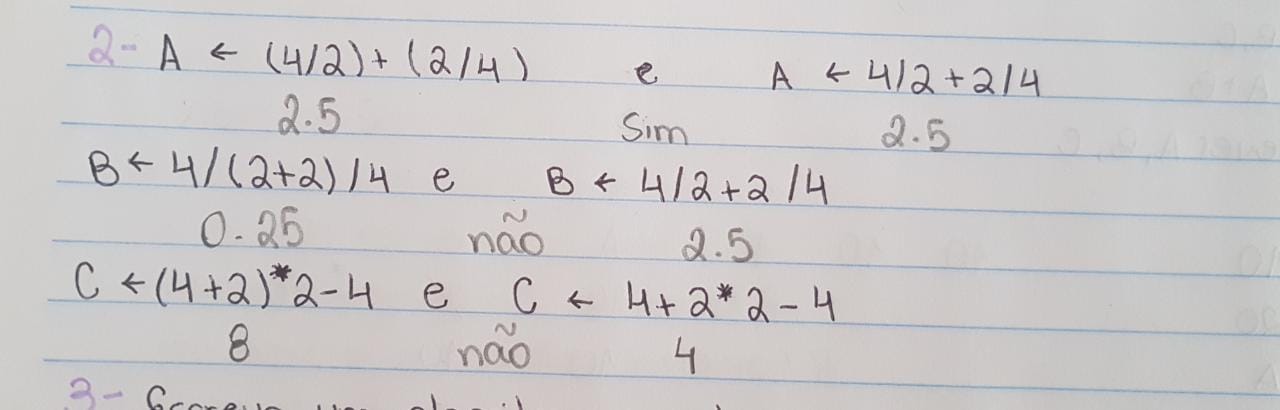 2- A ← (4/2)+(2/4) e A ← 4/2+2/4
2.5 Sim 2.5
B ← 4/(2+2)/4 e B ← 4/2+2/4
0.25 não 2.5
C ← (4+2)*2-4 e C ← 4+2*2-4
8 não 4
3-